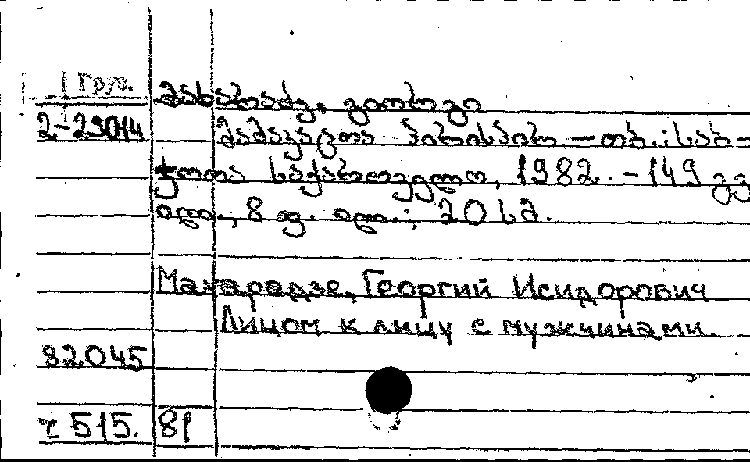 Груз.
მახარაძე, გიორგი
2-29014 მამაკაცთა პირისპირ – თბ.: საბ-
ჭოთა საქართველო, 1982. – 149 გვ
ილ., 8 ფ. ილ.; 20 სმ.
Махарадзе, Георгий Исидорович
Лицом к лицу с мужчинами.
82045
515. 81